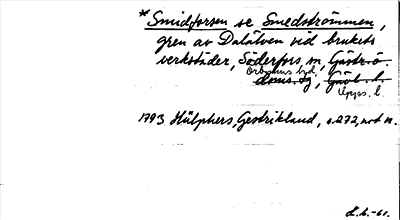 *Smidforsen se Smedströmmen,
gren av Dalälven vid brukets
verkstäder, Söderfors sn, Gästr. ö.
Örbyhus hd.
doms. sg, Gävl. l.
Upps. l.
1793 Hülphers, Gestrikland, s. 272, not n.
L.h.-60.